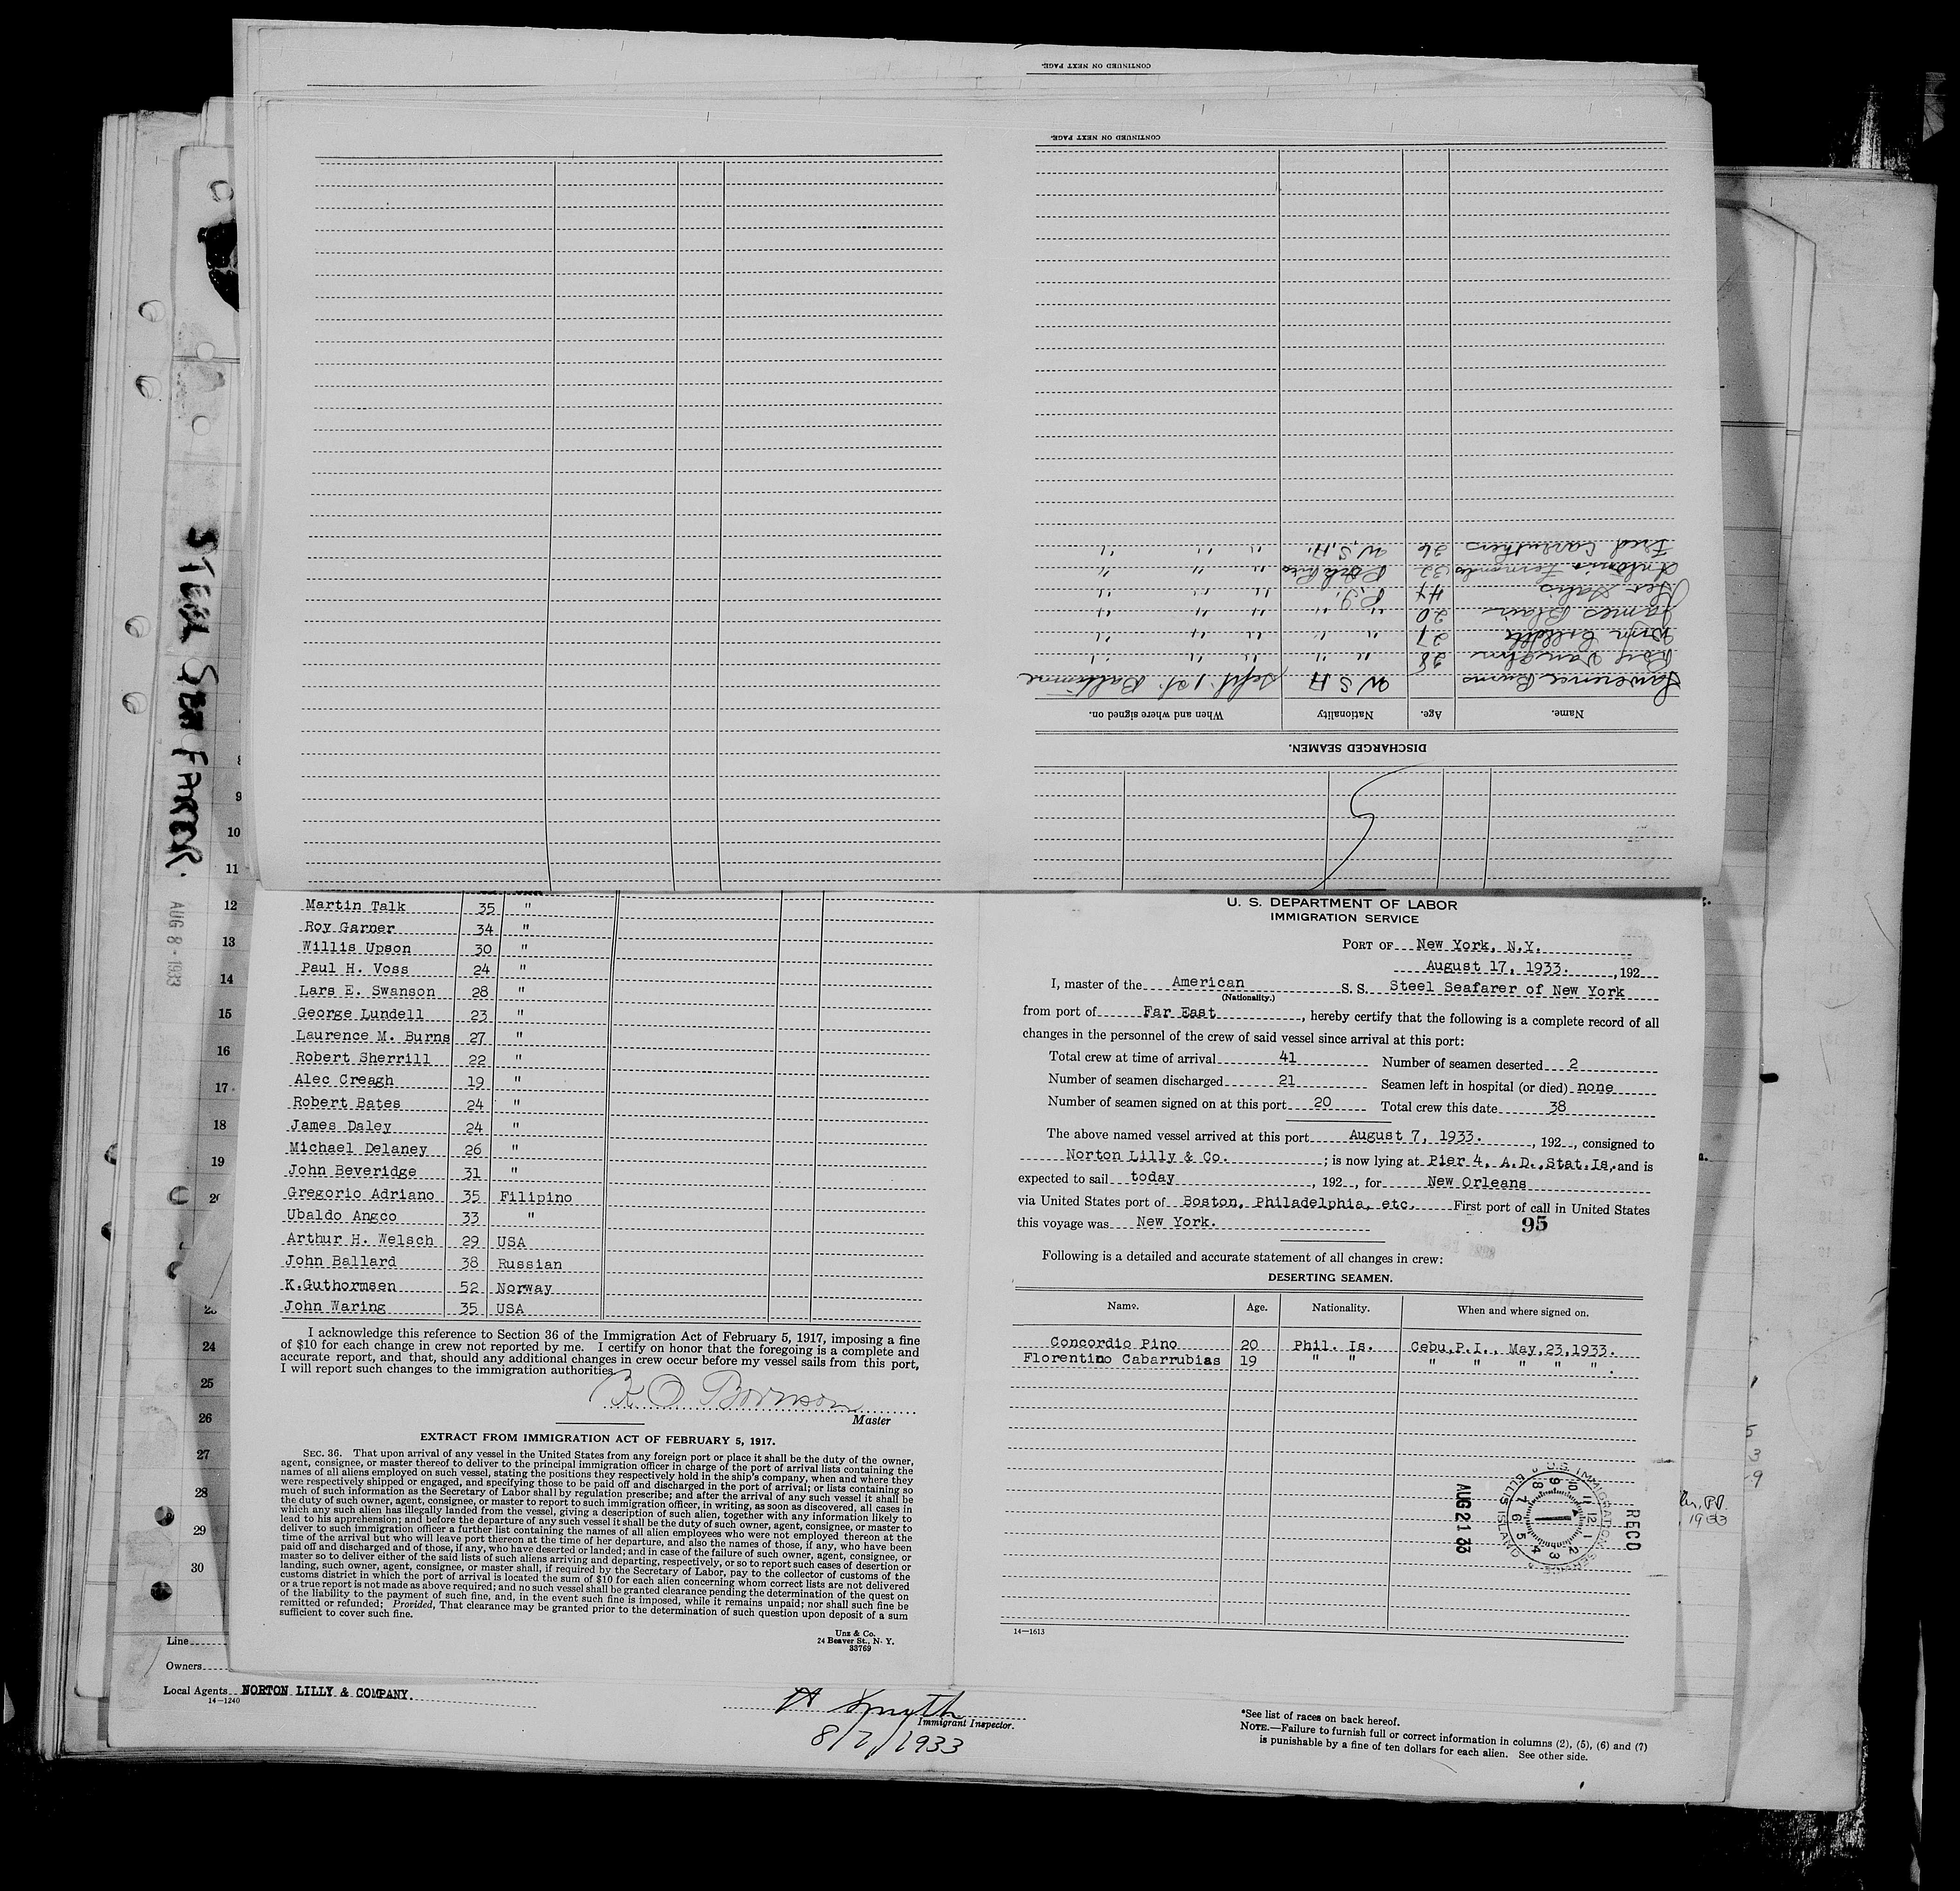 CONTINUED ON NEXT PAGE.
CONTINUED ON NEXT PAGE.
DISCHARGED SEAMEN.
Name. Age. Nationality When and where signed on.
Lawerence Burns U S A Sept. 1 st. Baltimore
28 " " " " "
27 " " " " "
James Blair 20 " " " " "
Geo 44 P.I. " " "
Antonio Fernando 32 " " "
Fred Carruthers 26 U.S.A. " " "
STEEL SEAFARER.
AUG 8 - 1933
9
10
11
12
13
14
15
16
17
18
19
24
25
26
27
28
29
30
Martin Talk 35 "
Roy Garner 34 "
Willis Upson 30 "
Paul H. Voss 24 "
Lars E. Swanson 28 "
George Lundell 23 "
Laurence M. Burns 27 "
Robert Sherrill 22 "
Alec Creagh 19 "
Robert Bates 24 "
James Daley 24 "
Michael Delaney 26 "
John Beveridge 31 "
Gregorio Adriano 35 Filipino
Ubaldo Angco 33 "
Arthur H. Welsch 29 USA
John Ballard 38 Russian
K.Guthormsen 52 Norway
John Waring 35 USA
I acknowledge this reference to Section 36 of the Immigration Act of February 5, 1917, imposing a fine
of $10 for each change in crew not reported by me. I certify on honor that the foregoing is a complete and
accurate report, and that, should any additional changes in crew occur before my vessel sails from this port,
I will report such changes to the immigration authorities.
Master
EXTRACT FROM IMMIGRATION ACT OF FEBRUARY 5, 1917.
SEC. 36. That upon arrival of any vessel in the United States from any foreign port or place it shall be the duty of the owner,
agent, consignee, or master thereof to deliver to the principal immigration officer in charge of the port of arrival lists containing the
names of all aliens employed on such vessel, stating the positions they respectively hold in the ship's company, when and where they
were respectively shipped or engaged, and specifying those to be paid off and discharged in the port of arrival; or lists containing so
much of such information as the Secretary of Labor shall by regulation prescribe; and after the arrival of any such vessel it shall be
the duty of such owner, agent, consignee, or master to report to such immigration officer, in writing, as soon as discovered, all cases in
which any such alien has illegally landed from the vessel, giving a description of such alien, together with any information likely to
lead to his apprehension; and before the departure of any such vessel it shall be the duty of such owner, agent, consignee, or master to
deliver to such immigration officer a further list containing the names of all alien employees who were not employed thereon at the
time of the arrival but who will leave port thereon at the time of her departure, and also the names of those, if any, who have been
paid off and discharged and of those, if any, who have deserted or landed; and in case of the failure of such owner, agent, consignee, or
master so to deliver either of the said lists of such aliens arriving and departing, respectively, or so to report such cases of desertion or
landing, such owner, agent, consignee, or master shall, if required by the Secretary of Labor, pay to the collector of customs of the
customs district in which the port of arrival is located the sum of $10 for each alien concerning whom correct lists are not delivered
or a true report is not made as above required; and no such vessel shall be granted clearance pending the determination of the quest on
of the liability to the payment of such fine, and, in the event such fine is imposed, while it remains unpaid; nor shall such fine be
remitted or refunded; Provided, That clearance may be granted prior to the determination of such question upon deposit of a sum
sufficient to cover such fine.
Unz & Co.
24 Beaver St., N. Y.
33769
U. S. DEPARTMENT OF LABOR
IMMIGRATION SERVICE
PORT OF New York, N.Y.
August 17, 1933. , 192
I, master of the American S. S. Steel Seafarer of New York
(Nationality.)
from port of Far East , hereby certify that the following is a complete record of all
changes in the personnel of the crew of said vessel since arrival at this port:
Total crew at time of arrival 41 Number of seamen deserted 2
Number of seamen discharged 21 Seamen left in hospital (or died) none
Number of seamen signed on at this port 20 Total crew this date 38
The above named vessel arrived at this port August 7, 1933. , 192 , consigned to
Norton Lilly & Co. ; is now lying at Pier 4, A.D.,Stat.Is, and is
expected to sail today , 192 , for New Orleans
via United States port of Boston, Philadelphia, etc. First port of call in United States
this voyage was New York. 95
Following is a detailed and accurate statement of all changes in crew:
DESERTING SEAMEN.
Name. Age. Nationality. When and where signed on.
Concordio Pino 20 Phil. Is. Cebu,P.I., May,23,1933.
Florentino Cabarrubias 19 " " " " " " " .
RECD
U.S. IMMIGRATION SERVICE ELLIS ISLAND
12 1 2 3 4 5 6 7 8 9 10 11
AUG 21 33
14—1613
Line
Owners
Local Agents NORTON LILLY & COMPANY.
14—1240
H Smyth
Immigrant Inspector.
8/7/1933
*See list of races on back hereof.
NOTE.—Failure to furnish full or correct information in columns (2), (5), (6) and (7)
is punishable by a fine of ten dollars for each alien. See other side.